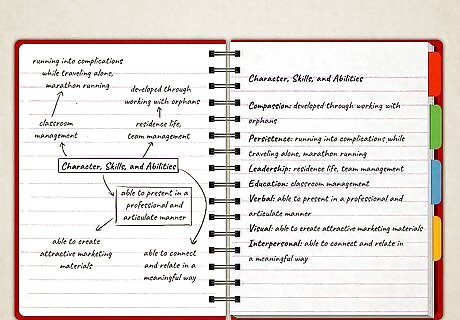 running into complications
while traveling alone,
marathon running
developed through
working with orphans
classroom
management
residence life,
team management
Character, Skills, and Abilities
able to present in a
professional and
articulate manner
able to create
attractive marketing
materials
able to connect
and relate in a
meaningful way
Character, Skills, and Abilities
Compassion: developed through working with
orphans
Persistence: running into complications while
traveling alone, marathon running
Leadership: residence life, team management
Education: classroom management
Verbal: able to present in a professional and
articulate manner
Visual: able to create attractive marketing materials
Interpersonal: able to connect and relate in
a meaningful way